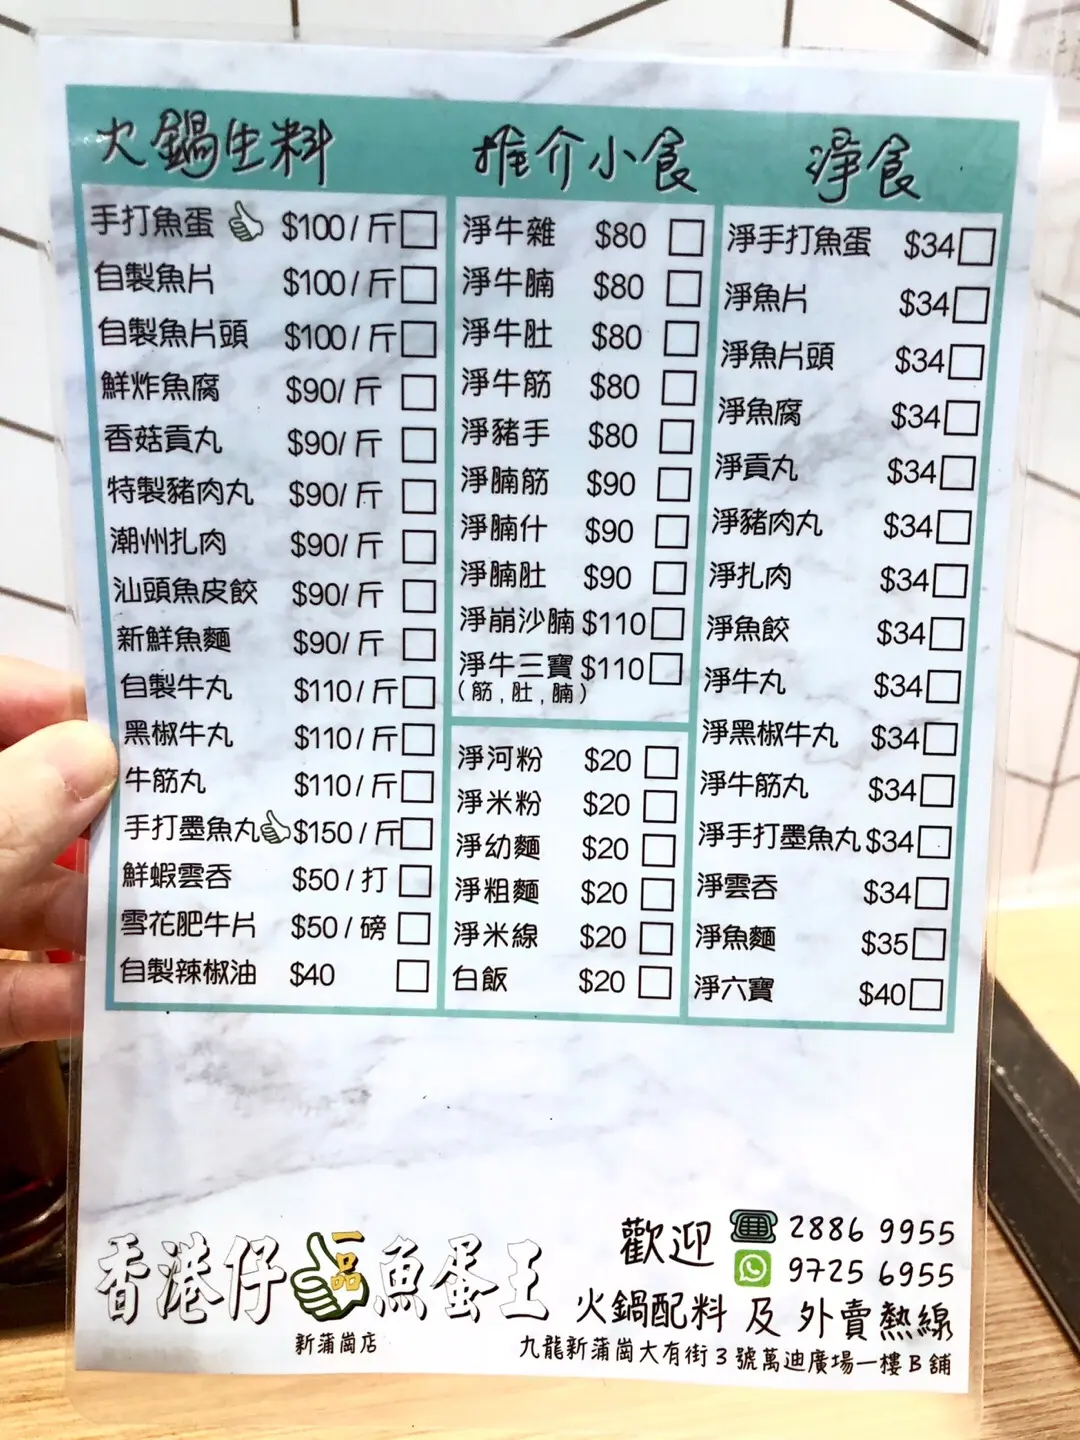 火鍋生料
手打魚蛋 $100/斤
自製魚片 $100/斤
自製魚片頭 $100/斤
鮮炸魚腐 $90/斤
香菇貢丸 $90/斤
特製豬肉丸 $90/斤
潮州扎肉 $90/斤
汕頭魚皮餃 $90/斤
新鮮魚麵 $90/斤
自製牛丸 $110/斤
黑椒牛丸 $110/斤
牛筋丸 $110/斤
手打墨魚丸 $150/斤
鮮蝦雲吞 $50/打
雪花肥牛片 $50/磅
自製辣椒油 $40
推介小食
淨牛雜 $80
淨牛腩 $80
淨牛肚 $80
淨牛筋 $80
淨豬手 $80
淨腩筋 $90
淨腩什 $90
淨腩肚 $90
淨崩沙腩 $110
淨牛三寶 $110
(筋,肚,腩)
淨河粉 $20
淨米粉 $20
淨幼麵 $20
淨粗麵 $20
淨米線 $20
白飯 $20
淨食
淨手打魚蛋 $34
淨魚片 $34
淨魚片頭 $34
淨魚腐 $34
淨貢丸 $34
淨豬肉丸 $34
淨扎肉 $34
淨魚餃 $34
淨牛丸 $34
淨黑椒牛丸 $34
淨牛筋丸 $34
淨手打墨魚丸 $34
淨雲吞 $34
淨魚麵 $35
淨六寶 $40
香港仔一品魚蛋王
新蒲崗店
歡迎 2886 9955
9725 6955
火鍋配料 及 外賣熱線
九龍新蒲崗大有街3號萬迪廣場一樓B舖